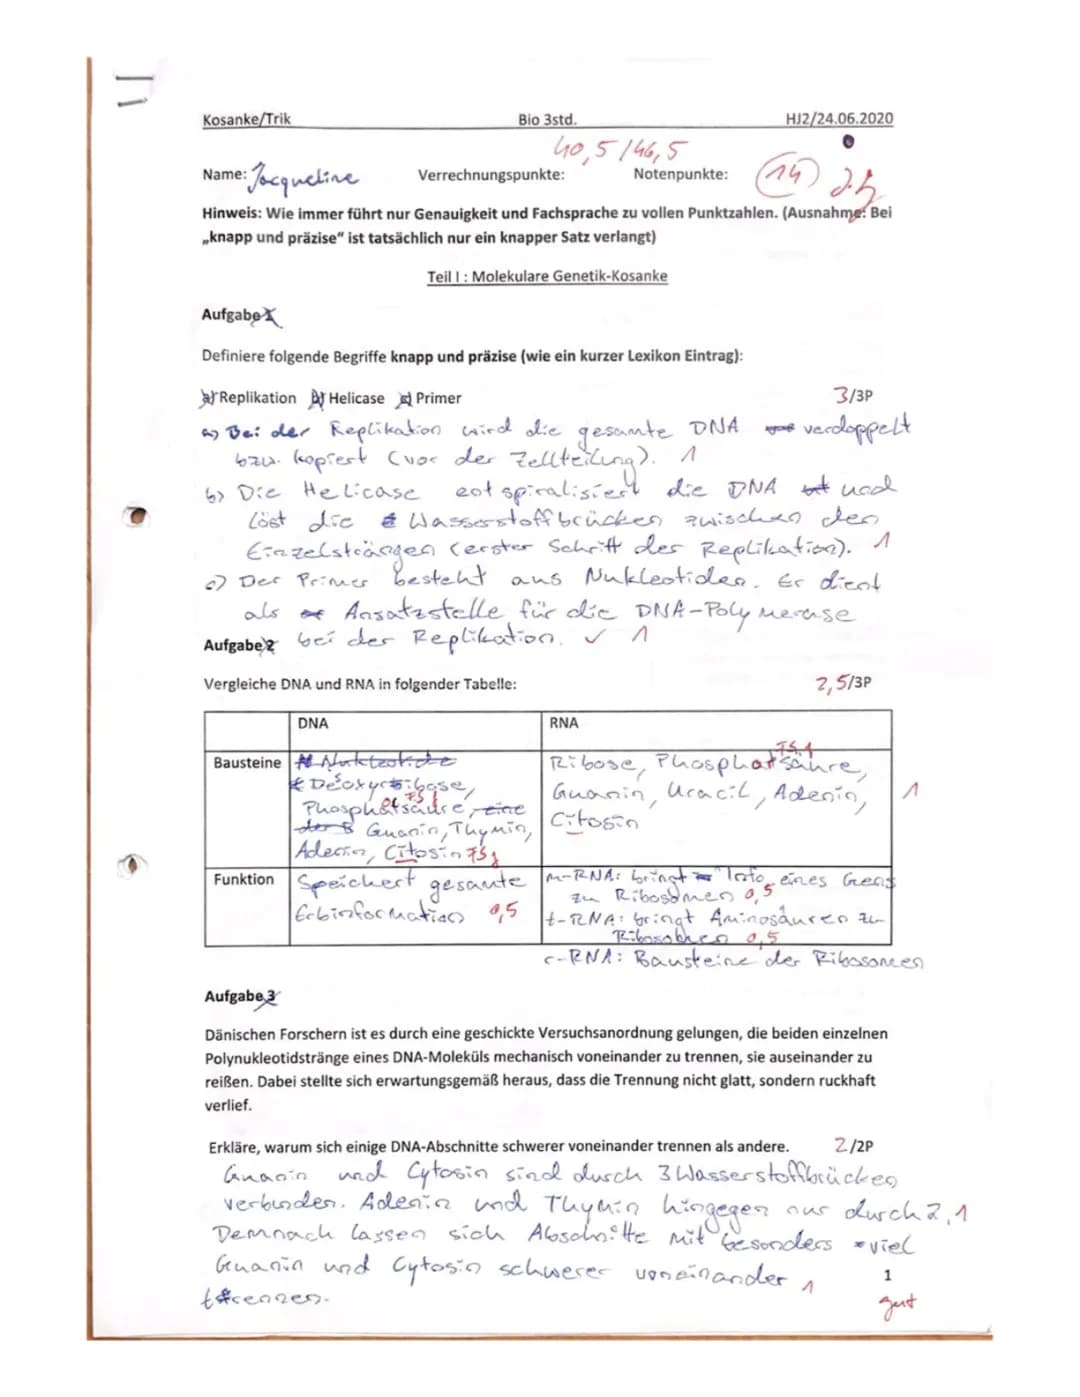 Kosanke/Trik Bio 3std. HJ2/24.06.2020
40,5/46,5
Name: Jacqueline Verrechnungspunkte: Notenpunkte: 14
Hinweis: Wie immer führt nur Genauigkeit und Fachsprache zu vollen Punktzahlen. (Ausnahme: Bei
„knapp und präzise“ ist tatsächlich nur ein knapper Satz verlangt)
Teil I : Molekulare Genetik-Kosanke
Aufgabe 1
Definiere folgende Begriffe knapp und präzise (wie ein kurzer Lexikon Eintrag):
a) Replikation b) Helicase c) Primer 3/3P
a) Bei der Replikation wird die gesamte DNA verdoppelt
bzw. kopiert (vor der Zellteilung). 1
b) Die Helicase entspiralisiert die DNA und
löst die Wasserstoffbrücken zwischen den
Einzelsträngen (erster Schritt der Replikation). 1
c) Der Primer besteht aus Nukleotiden. Er dient
als Ansatzstelle für die DNA-Polymerase
Aufgabe 2 bei der Replikation. ✓ 1
Vergleiche DNA und RNA in folgender Tabelle: 2,5/3P
DNA RNA
Bausteine Nukleotide
Desoxyribose,
Phosphatsäure, eine
der B Guanin, Thymin,
Adenin, Citosin FS
Ribose, Phosphatsäure,
Guanin, Uracil, Adenin, 1
Citosin
Funktion Speichert gesamte
Erbinformation 0,5
m-RNA: bringt Info eines Gens
zu Ribosomen 0,5
t-RNA: bringt Aminosäuren zu
Ribosomen 0,5
r-RNA: Bausteine der Ribosomen
Aufgabe 3
Dänischen Forschern ist es durch eine geschickte Versuchsanordnung gelungen, die beiden einzelnen
Polynukleotidstränge eines DNA-Moleküls mechanisch voneinander zu trennen, sie auseinander zu
reißen. Dabei stellte sich erwartungsgemäß heraus, dass die Trennung nicht glatt, sondern ruckhaft
verlief.
Erkläre, warum sich einige DNA-Abschnitte schwerer voneinander trennen als andere. 2/2P
Guanin und Cytosin sind durch 3 Wasserstoffbrücken
verbunden. Adenin und Thymin hingegen nur durch 2. 1
Demnach lassen sich Abschnitte mit besonders viel
Guanin und Cytosin schwerer voneinander 1
trennen.
1
gut